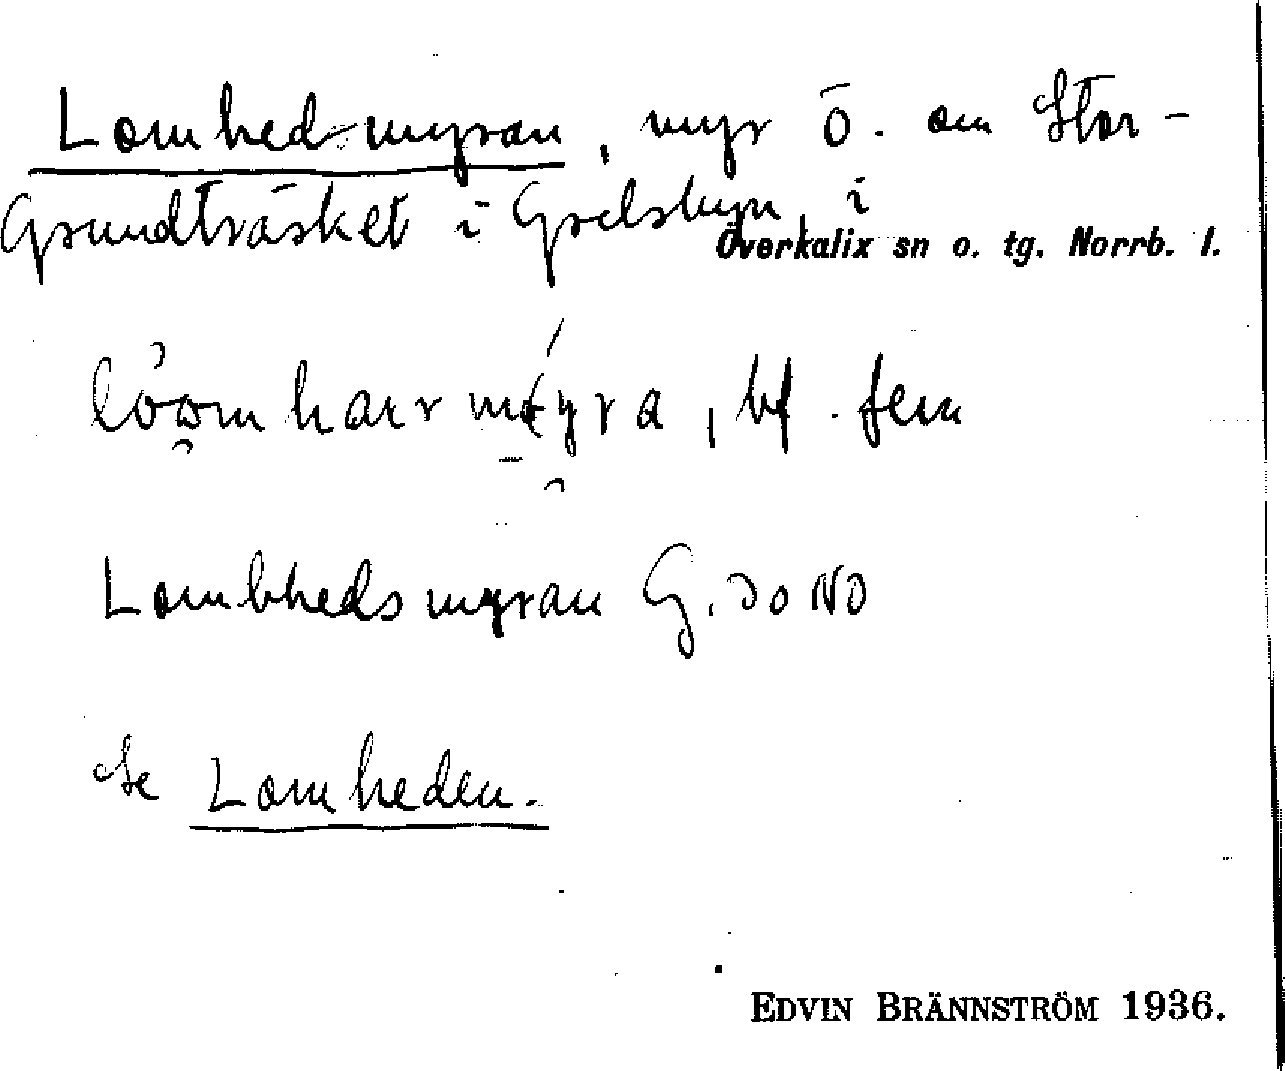 Lomhedmyran, myr ö. om Stor-
Grundträsket i Grelsbyn, i
Överkalix sn o. tg. Norrb. l.
bf. fem
Lombhedsmyran G. 30 NO
Se Lomheden.
EDVIN BRÄNNSTRÖM 1936.